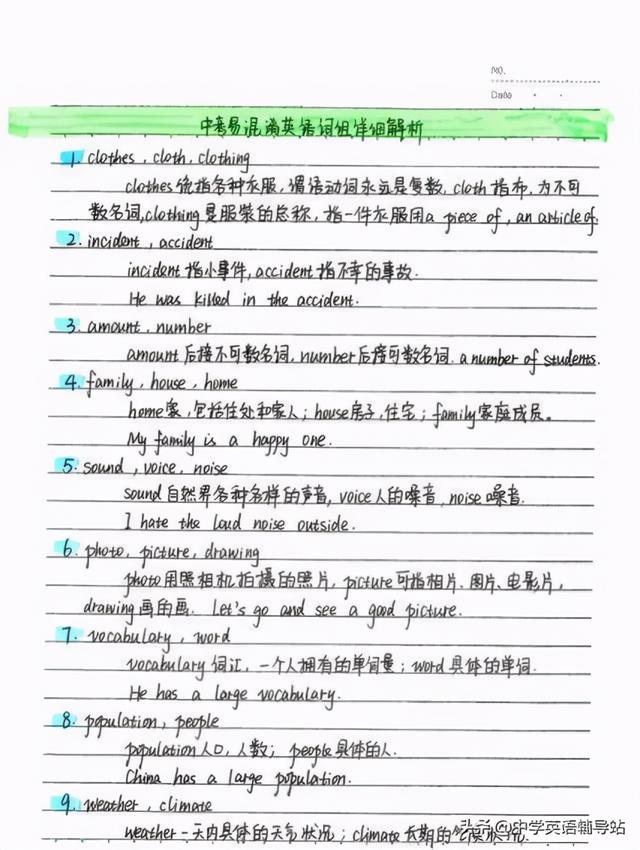 NO.
Date
中考易混淆英语词组详细解析
1. clothes, cloth, clothing
clothes统指各种衣服，谓语动词永远是复数, cloth指布, 为不可
数名词, clothing是服装的总称，指一件衣服用a piece of, an article of.
2. incident, accident
incident指小事件, accident指不幸的事故.
He was killed in the accident.
3. amount, number
amount后接不可数名词, number后接可数名词. a number of students.
4. family, house, home
home家, 包括住处和家人; house房子, 住宅; family家庭成员。
My family is a happy one.
5. sound, voice, noise
sound自然界各种各样的声音, voice人的嗓音, noise噪音.
I hate the loud noise outside.
6. photo, picture, drawing
photo用照相机拍摄的照片, picture可指相片、图片、电影片,
drawing画的画. Let's go and see a good picture.
7. vocabulary, word
vocabulary词汇, 一个人拥有的单词量; word具体的单词.
He has a large vocabulary.
8. population, people
population人口, 人数; people具体的人.
China has a large population.
9. weather, climate
weather一天内具体的天气状况; climate长期的气候状况.
头条@中学英语辅导站